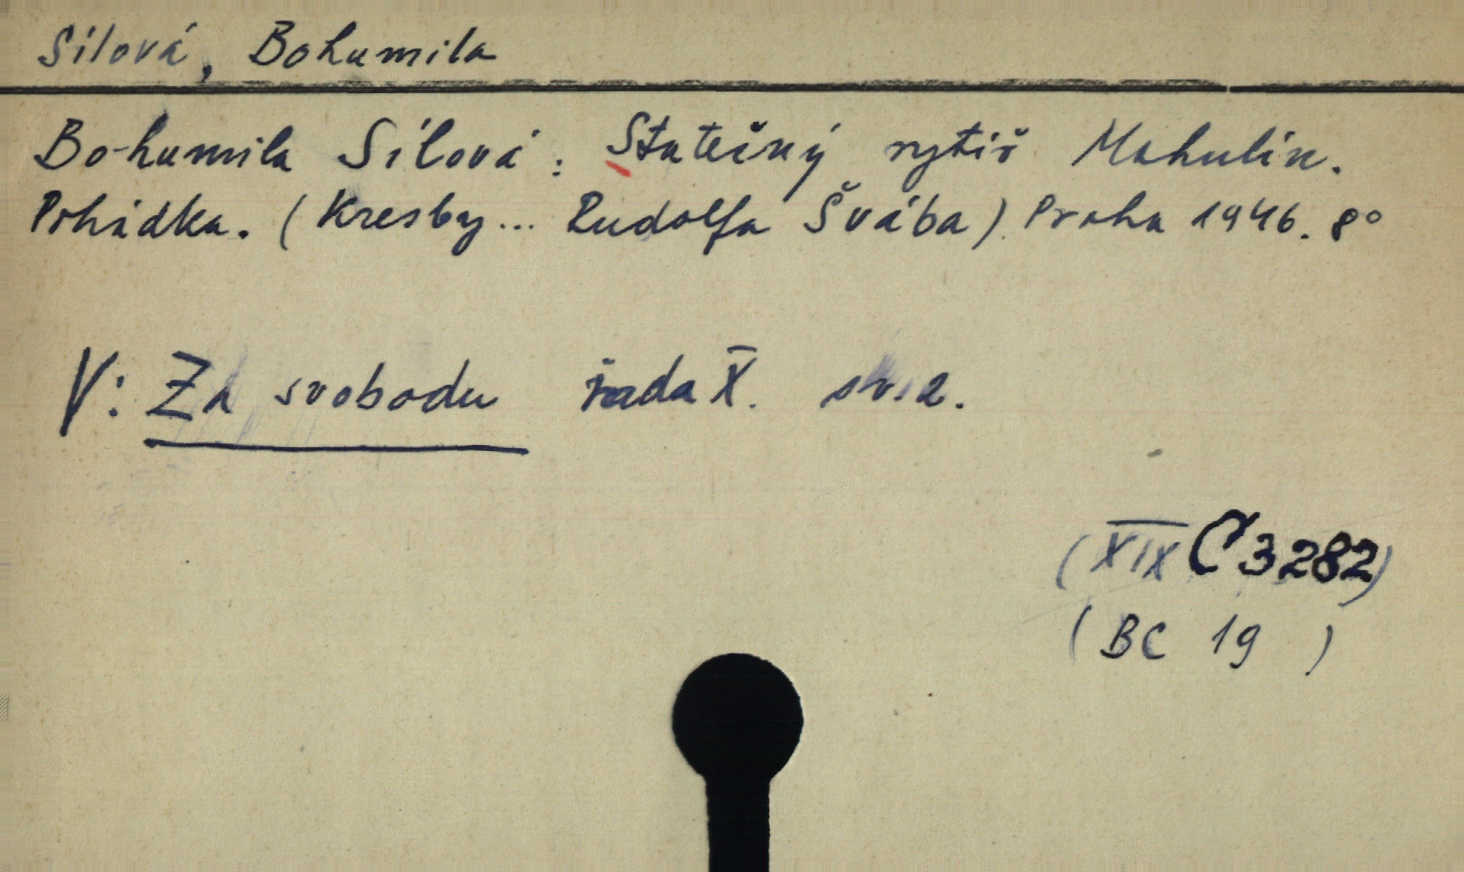 Sílová, Bohumila
Bohumila Sílová: Statečný rytíř Mahulín.
Pohádka. (Kresby... Rudolfa Švába). Praha 1946. 8°
V: Za svobodu řada X. sv. 2.
(XIX C 3282)
(BC 19 )